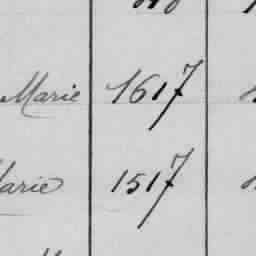 Marie 1617
Marie 1517